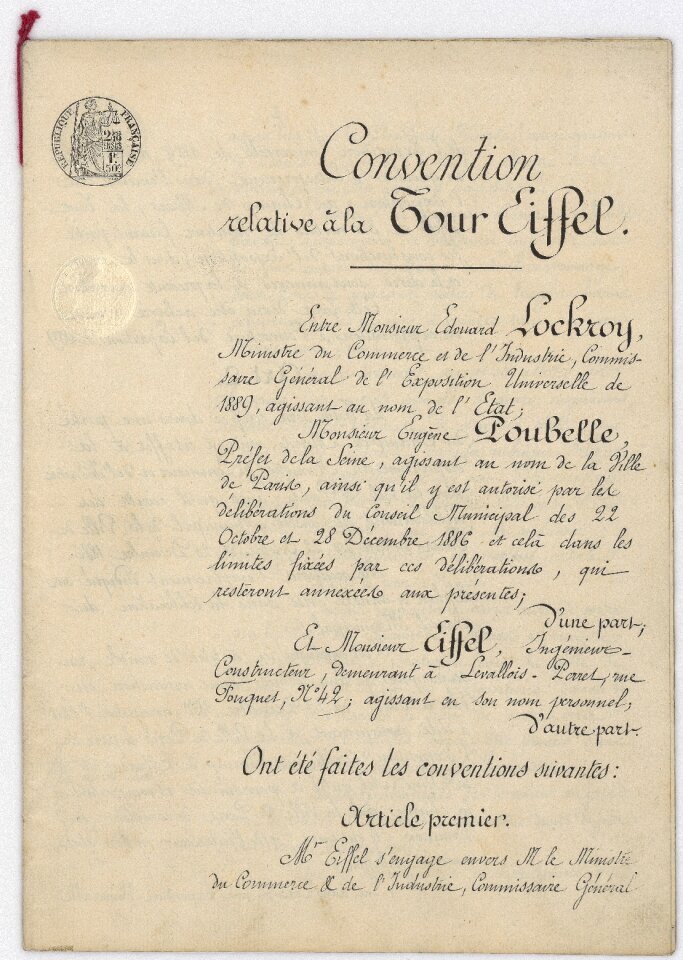 RÉPUBLIQUE FRANÇAISE
Convention
relative à la Tour Eiffel.
Entre Monsieur Edouard Lockroy,
Ministre du Commerce et de l'Industrie, Commis-
saire Général de l'Exposition Universelle de
1889, agissant au nom de l'Etat;
Monsieur Eugène Poubelle,
Préfet de la Seine, agissant au nom de la Ville
de Paris, ainsi qu'il y est autorisé par les
délibérations du Conseil Municipal des 22
Octobre et 28 Décembre 1886 et celà dans les
limites fixées par ces délibérations, qui
resteront annexées aux présentes;
D'une part;
Et Monsieur Eiffel, Ingénieur-
Constructeur, demeurant à Levallois-Perret, rue
Fouquet, N° 42; agissant en son nom personnel;
D'autre part.
Ont été faites les conventions suivantes:
Article premier.
Mr Eiffel s'engage envers M le Ministre
du Commerce & de l'Industrie, Commissaire Général